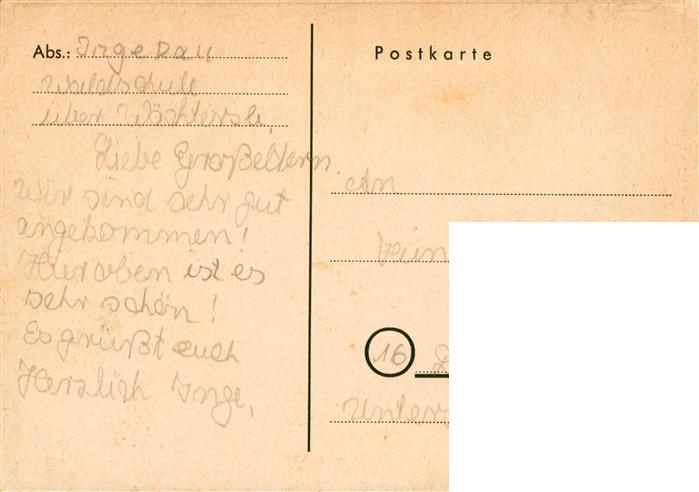 Abs.: Inge Rau
Waldschule
über Wächtersb.
Liebe Großeltern.
Wir sind sehr gut
angekommen!
Hier oben ist es
sehr schön!
Es grüßt euch
Herzlich Inge.
Postkarte
An
16